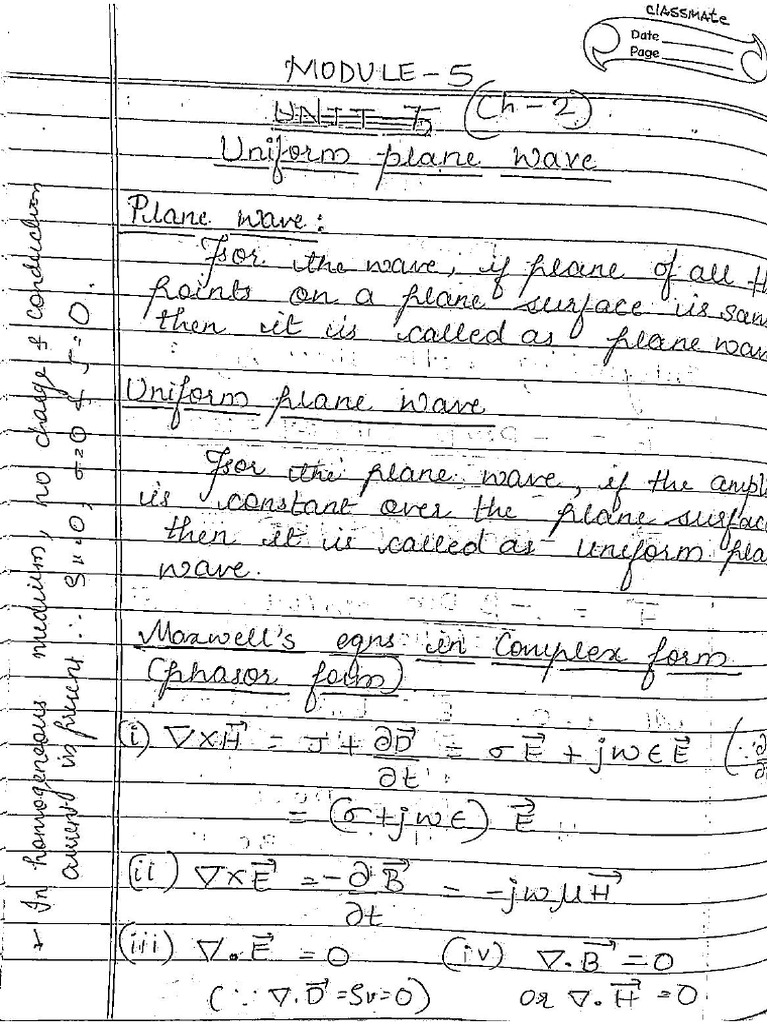 CLASSMATE
Date
Page
MODULE-5
UNIT-5 (Ch-2)
Uniform plane wave
Plane wave:
For the wave, if plane of all th
points on a plane surface is sam
then it is called as plane wav
Uniform plane wave
For the plane wave, if the ampli
is constant over the plane surface
then it is called as uniform pla
wave.
Maxwell's eqns in Complex form
(phasor form)
(i) ∇×H⃗ = J + ∂D⃗/∂t = σE⃗ + jωϵE⃗ (∵ ∂
= (σ+jωϵ) E⃗
(ii) ∇×E⃗ = -∂B⃗/∂t = -jωμH⃗
(iii) ∇.E⃗ = 0 (iv) ∇.B⃗ = 0
(∵ ∇.D⃗ = Sv = 0) or ∇.H⃗ = 0
* In homogeneous medium, no charge & conduction
current is present ∴ Sv=0, σ=0 & J=0.